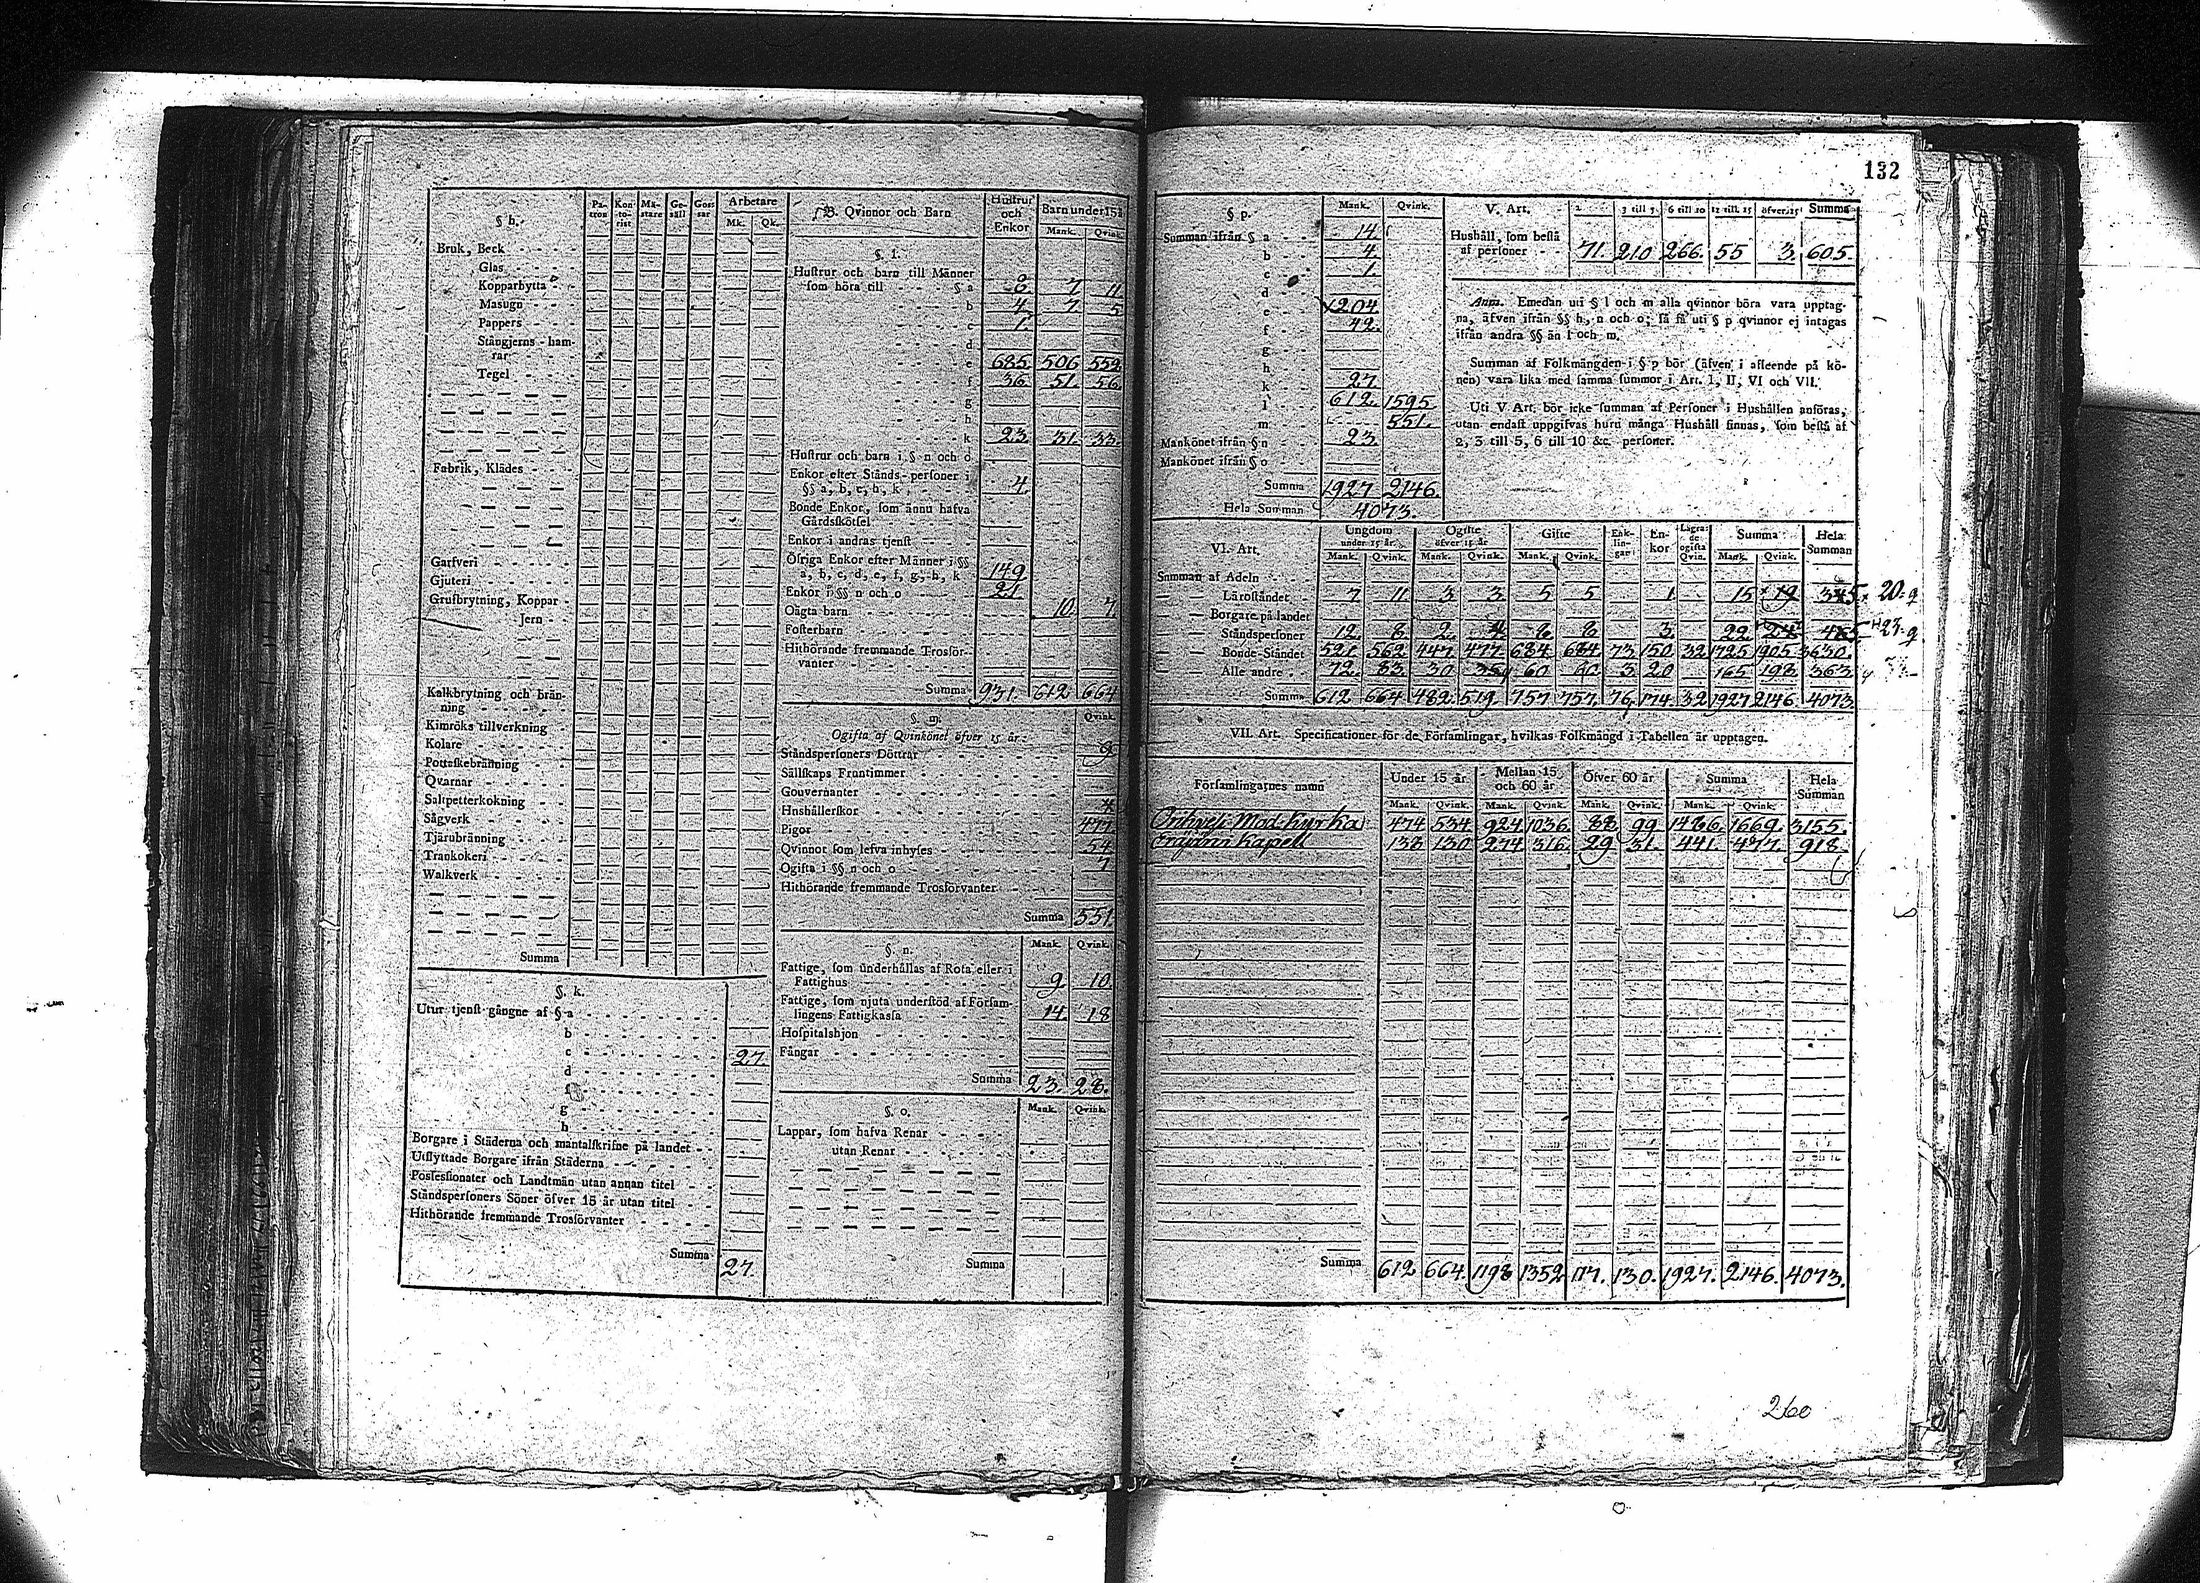 132
§ h.
Pa- tron
Kon- to- rist
Mä- stare
Ge- säll
Gos- sar
Arbetare
Mk. Qk.
Bruk, Beck
Glas
Kopparhytta
Masugn
Pappers
Stångjerns-ham-
rar
Tegel
Fabrik, Klädes
Garfveri
Gjuteri
Grufbrytning, Koppar
Jern
Kalkbrytning och brän-
ning
Kimröks tillverkning
Kolare
Pottaskebränning
Qvarnar
Saltpetterkokning
Sågverk
Tjärubränning
Trankokeri
Walkverk
Summa
§. k.
Utur tjenst gångne af § a
b
c 27.
d
f
g
h
Borgare i Städerna och mantalskrifne på landet
Utflyttade Borgare ifrån Städerna
Possessionater och Landtmän utan annan titel
Ståndspersoners Söner öfver 15 år utan titel
Hithörande fremmande Trosförvanter
Summa 27.
B. Qvinnor och Barn
Hustrur och Enkor
Barn under 15 år
Mank. Qvink.
§. l.
Hustrur och barn till Männer
som höra till § a 6 7 11
b 4 7 5
c 1
d
e 685 506 552
f 36 51 56
g
h
k 23 31 33
Hustrur och barn i § n och o
Enkor efter Stånds-personer i
§§ a, b, c, h, k 4
Bonde Enkor, som ännu hafva
Gårdsskötsel
Enkor i andras tjenst
Öfriga Enkor efter Männer i §§
a, b, c, d, e, f, g, h, k 149
Enkor i §§ n och o 21
Oägta barn 10 7
Fosterbarn
Hithörande fremmande Trosför-
vanter
Summa 931. 612 664
§. m. Qvink.
Ogifta af Qvinkönet öfver 15 år.
Ståndspersoners Döttrar 9
Sällskaps Fruntimmer
Gouvernanter
Hushållerskor 4
Pigor 477
Qvinnor som lefva inhyses 54
Ogifta i §§ n och o 7
Hithörande fremmande Trosförvanter
Summa 551
§. n. Mank. Qvink.
Fattige, som underhållas af Rota eller i
Fattighus 9 10
Fattige, som njuta understöd af Försam-
lingens Fattigkassa 14 18
Hospitalshjon
Fångar
Summa 23. 28.
§. o. Mank. Qvink.
Lappar, som hafva Renar
utan Renar
Summa
§ p. Mank. Qvink.
Summan ifrån § a 14
b 4
c 1
d
e 1204
f 42
g
h
k 27
l 612 1595
m 551
Mankönet ifrån § n 23
Mankönet ifrån § o
Summa 1927 2146.
Hela Summan 4073.
V. Art. 2 3 till 5 6 till 10 12 till 15 öfver 15 Summa
Hushåll, som bestå
af personer 71. 210 266. 55 3. 605.
Anm. Emedan uti § l och m alla qvinnor böra vara upptag-
na, äfven ifrån §§ h, n och o; så få uti § p qvinnor ej intagas
ifrån andra §§ än l och m.
Summan af Folkmängden i § p bör (äfven i afseende på kö-
nen) vara lika med samma summor i Art. I, II, VI och VII.
Uti V Art. bör icke summan af Personer i Hushållen anföras,
utan endast uppgifvas huru många Hushåll finnas, som bestå af
2, 3 till 5, 6 till 10 &c. personer.
VI. Art.
Ungdom under 15 år
Ogifte öfver 15 år
Gifte
Enk- lin- gar
En- kor
Lägra- de ogifta Qvin.
Summa
Hela Summan
Mank. Qvink. Mank. Qvink. Mank. Qvink. Mank. Qvink.
Summan af Adeln
Läroståndet 7 11 3 3 5 5 1 15 19
Borgare på landet
Ståndspersoner 12 8 2 4 8 8 3 22 24
Bonde-Ståndet 521 562 447 477 684 684 73 150 32 1725 1905 3630.
Alle andre 72 83 30 35 60 60 3 20 165 198 363
Summa 612 664 482 519 757 757. 76 174 32 1927 2146. 4073
VII. Art. Specificationer för de Församlingar, hvilkas Folkmängd i Tabellen är upptagen.
Församlingarnes namn
Under 15 år
Mellan 15 och 60 år
Öfver 60 år
Summa
Hela Summan
Mank. Qvink. Mank. Qvink. Mank. Qvink. Mank. Qvink.
Orihvesi Mod. Kyrka 474 534 924 1036 88 99 1486. 1669. 3155.
Eräjärvi Kapell 138 130 274 316 29 31. 441. 477. 918.
Summa 612 664. 1198 1352 117. 130. 1927. 2146. 4073.
260